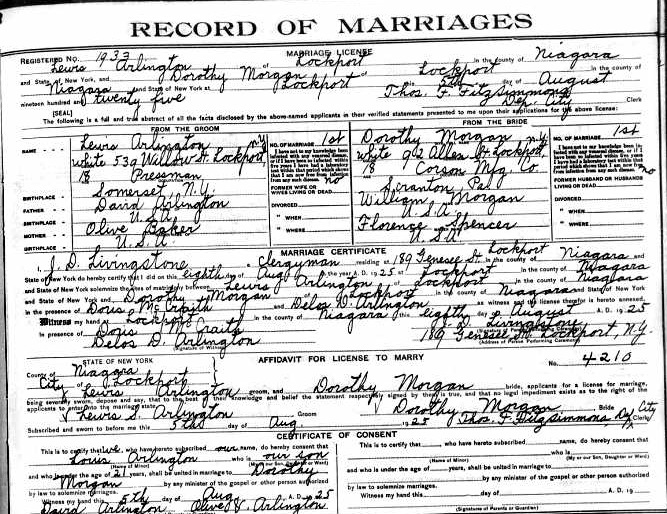 RECORD OF MARRIAGES
MARRIAGE LICENSE
REGISTERED No. 1933
Lewis Arlington of Lockport in the county of Niagara
and State of New York, and Dorothy Morgan of Lockport in the county of
Niagara and State of New York at Lockport this 5th day of August
nineteen hundred and twenty five Thos. F. FitzSimmons
(SEAL) Dep. City Clerk
The following is a full and true abstract of all the facts disclosed by the above-named applicants in their verified statements presented to me upon their applications for the above license:
FROM THE GROOM FROM THE BRIDE
NAME Lewis Arlington NO. OF MARRIAGE 1st Dorothy Morgan NO. OF MARRIAGE 1st
white 539 Willow St. Lockport, N.Y. white 92 Allen St. Lockport, N.Y.
18 Pressman no 18 Corson Mfg. Co. no
BIRTHPLACE Somerset N.Y. FORMER WIFE OR WIVES LIVING OR DEAD Scranton Pa. FORMER HUSBAND OR HUSBANDS LIVING OR DEAD
FATHER David Arlington DIVORCED William Morgan DIVORCED
BIRTHPLACE U.S.A. " WHEN U.S.A. " WHEN
MOTHER Olive Baker " WHERE Florence Spencer " WHERE
BIRTHPLACE U.S.A. U.S.A.
MARRIAGE CERTIFICATE
I, J. D. Livingstone a Clergyman residing at 189 Genesee St. Lockport in the county of Niagara and
State of New York do hereby certify that I did on this eighth day of Aug in the year A. D. 1925 at Lockport in the county of Niagara
and State of New York solemnize the rites of matrimony between Lewis Arlington of Lockport in the county of Niagara
and State of New York and Dorothy Morgan of Lockport in the county of Niagara and State of New York
in the presence of Doris and Delos D. Arlington as witness and the license therefor is hereto annexed.
Witness my hand at Lockport in the county of Niagara this eighth day of August A. D. 1925
In presence of Doris J. D. Livingstone
Delos D. Arlington 189 Genesee St. Lockport, N.Y.
(Signature of Witness) (Address of Person Performing Ceremony)
AFFIDAVIT FOR LICENSE TO MARRY
STATE OF NEW YORK No. 4210
County of Niagara
City of Lockport
Lewis Arlington groom, and Dorothy Morgan bride, applicants for a license for marriage,
being severally sworn, depose and say, that to the best of their knowledge and belief the statement respectively signed by them is true, and that no legal impediment exists as to the right of the
applicants to enter into the marriage state.
Lewis S. Arlington Groom Dorothy Morgan Bride
Subscribed and sworn to before me this 5th day of Aug 1925 Thos. F. FitzSimmons, Dep City Clerk
CERTIFICATE OF CONSENT
This is to certify that we, who have hereto subscribed our name, do hereby consent that This is to certify that who have hereto subscribed name, do hereby consent that
Louis Arlington who is our son who is
(Name of Minor) (My or our Son, Daughter or Ward) (Name of Minor) (My or our Son, Daughter or Ward)
and who is under the age of 21 years, shall be united in marriage to Dorothy and who is under the age of years, shall be united in marriage to
Morgan by any minister of the gospel or other person authorized by any minister of the gospel or other person authorized
by law to solemnize marriages. by law to solemnize marriages.
Witness my hand this 5th day of Aug A. D. 1925 Witness my hand this day of A. D. 19
David Arlington Olive V. Arlington
(Signature of Parents or Guardian)